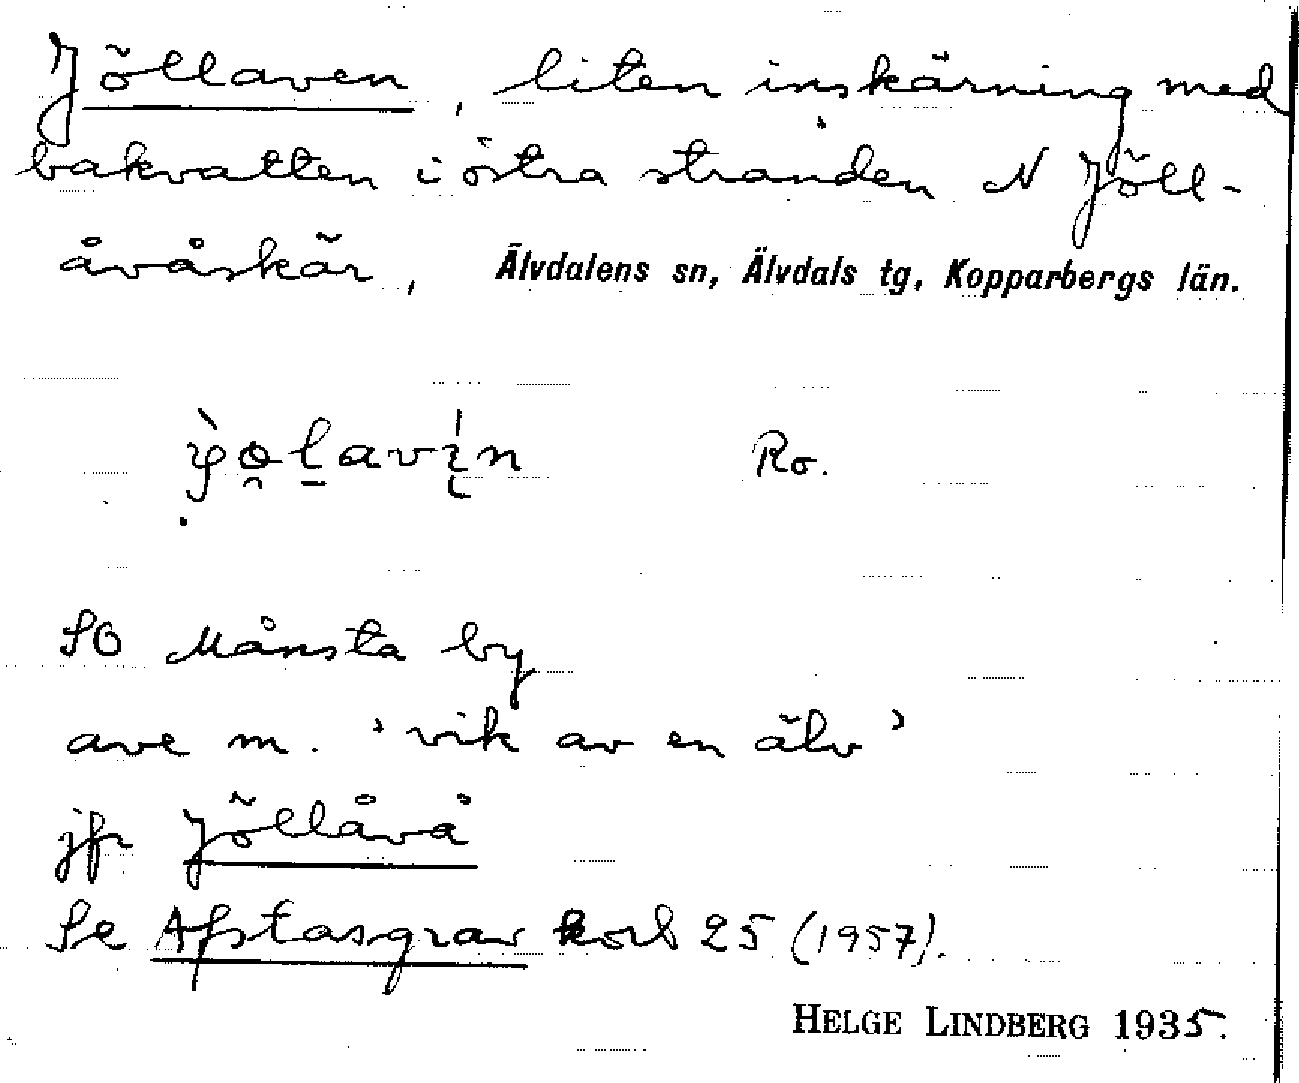 Jöllaven, liten inskärning med
bakvatten i östra stranden N Jöll-
åvåskär, Älvdalens sn, Älvdals tg, Kopparbergs län.
Ro.
SO Månsta by
ave m. 'vik av en älv'
jfr Jöllåvå
Se Afstasgrav kort 25 (1957).
HELGE LINDBERG 1935.